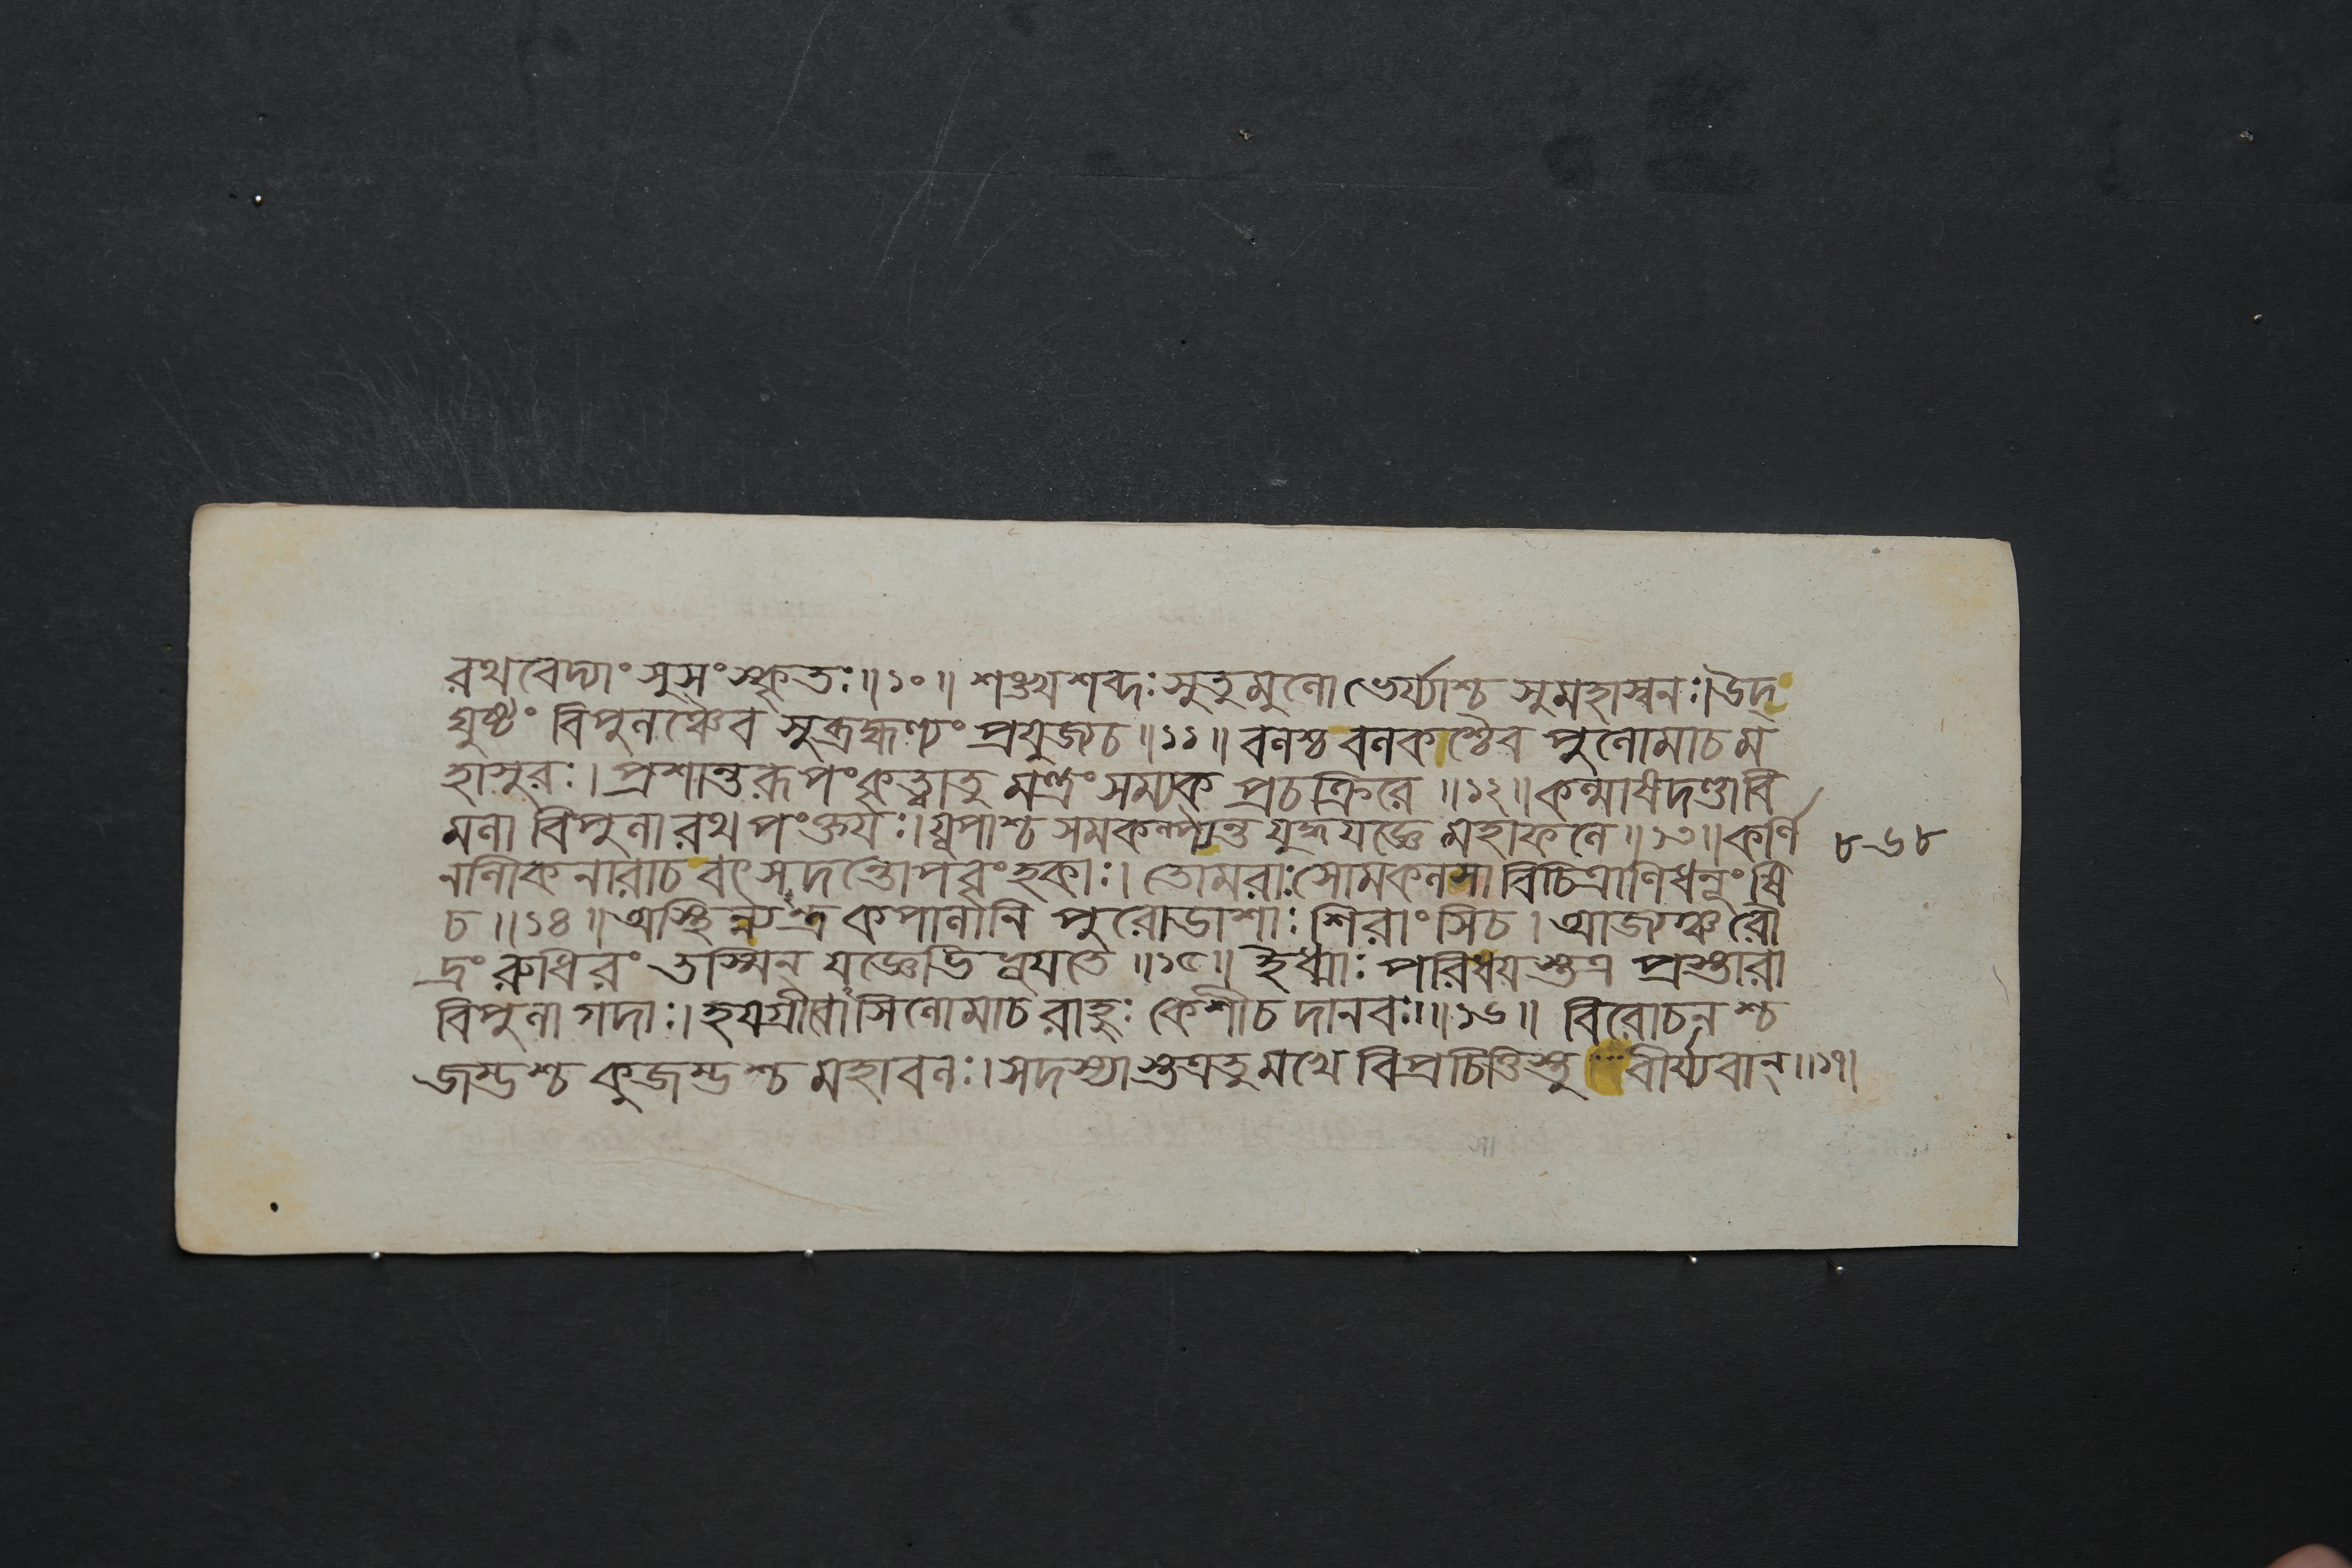 রথবেদ্যাং সুসংস্কৃতঃ॥১০॥ শঙ্খশব্দঃ সুতুমুলো ভের্য্যাশ্চ সুমহাস্বনঃ।উদ্
ঘুষ্টং বিপুলঞ্চৈব সুব্রহ্মণ্যং প্রযুজ্যচ॥১১॥ বলশ্চ বলকাশ্চৈব পুলোমাচম
হাসুরঃ। প্রশান্তরূপংকৃত্বাতু মন্ত্রংসম্যক প্রচক্রিরে॥১২॥কল্মাষদণ্ডাবি
মলা বিপুলা রথপংক্তযঃ।যূপাশ্চ সমকল্প্যন্ত যুদ্ধযজ্ঞে মহাফলে॥১৩॥কর্ণি
নণিকনারাচবৎসদন্তোপবৃংহকাঃ। তোমরাঃসোমকলসা বিচিত্রাণিধনূংষি
চ॥১৪॥অস্থিন্যত্র কপালানি পুরোডাশাঃ শিরাংসিচ। আজ্যঞ্চরৌ
দ্রং রুধিরং তস্মিন্ যজ্ঞেভিহূযতে॥১৫॥ ইধ্মাঃ পরিধযস্তত্র প্রস্তারা
বিপুলা গদাঃ।হযগ্রীবাসিলোমাচ রাহুঃ কেশীচ দানবঃ॥১৬॥ বিরোচনশ্চ
জম্ভশ্চ কুজম্ভশ্চ মহাবলঃ।সদস্যাস্তত্রতুমখে বিপ্রচিত্তিস্তু বীর্য্যবান্॥১৭।
৮৬৮